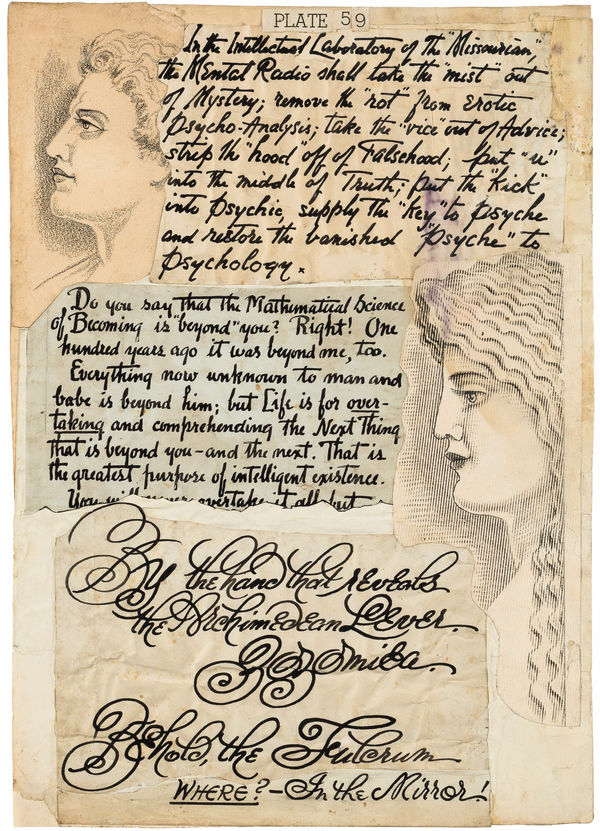 PLATE 59
In the Intellectual Laboratory of The "Missourian,"
the Mental Radio shall take the "mist" out
of Mystery; remove the "rot" from Erotic
Psycho-Analysis; take the "vice" out of Advice;
strip the "hood" off of Falsehood; put "u"
into the middle of Truth; put the "kick"
into psychic, supply the "key" to psyche
and restore the vanished "Psyche" to
Psychology.
Do you say that the Mathematical Science
of Becoming is "beyond" you? Right! One
hundred years ago it was beyond me, too.
Everything now unknown to man and
babe is beyond him; but Life is for over-
taking and comprehending the Next Thing
that is beyond you-and the next. That is
the greatest purpose of intelligent existence.
You will never overtake it all but
By the hand that reveals
the Archimedean Lever.
Behold, the Fulcrum
WHERE? - In the Mirror!